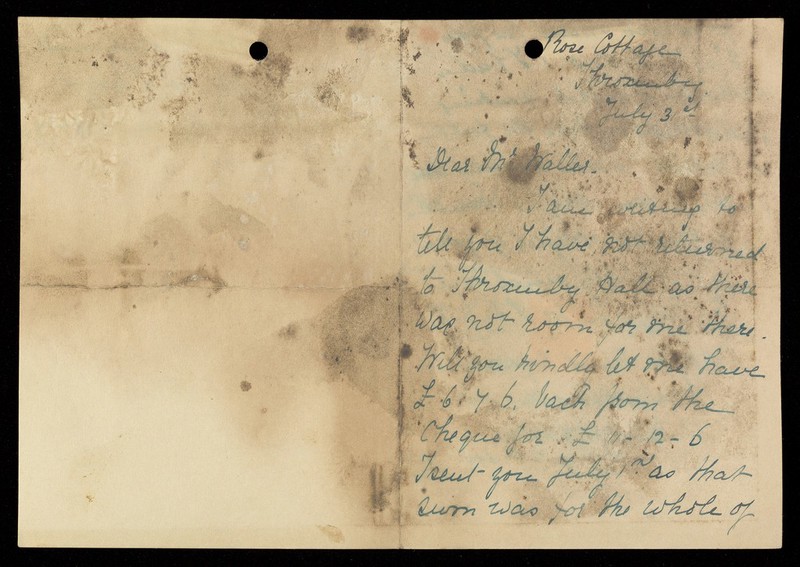 Rose Cottage
Throxenby
July 3rd
Dear Mr Waller.
I am writing to
tell you I have not returned
to Throxenby Hall as there
was not room for me there.
Will you kindly let me have
£ 6. 7. 6. back from the
Cheque for £ 11-12-6
I sent you July 1st as that
sum was for the whole of